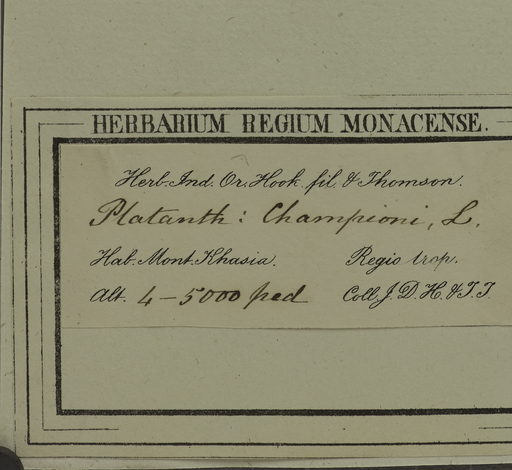 HERBARIUM REGIUM MONACENSE.
Herb. Ind. Or. Hook. fil. & Thomson.
Platanth: Championi, L.
Hab. Mont. Khasia. Regio trop.
Alt. 4-5000 ped Coll. J. D. H. & T. T.